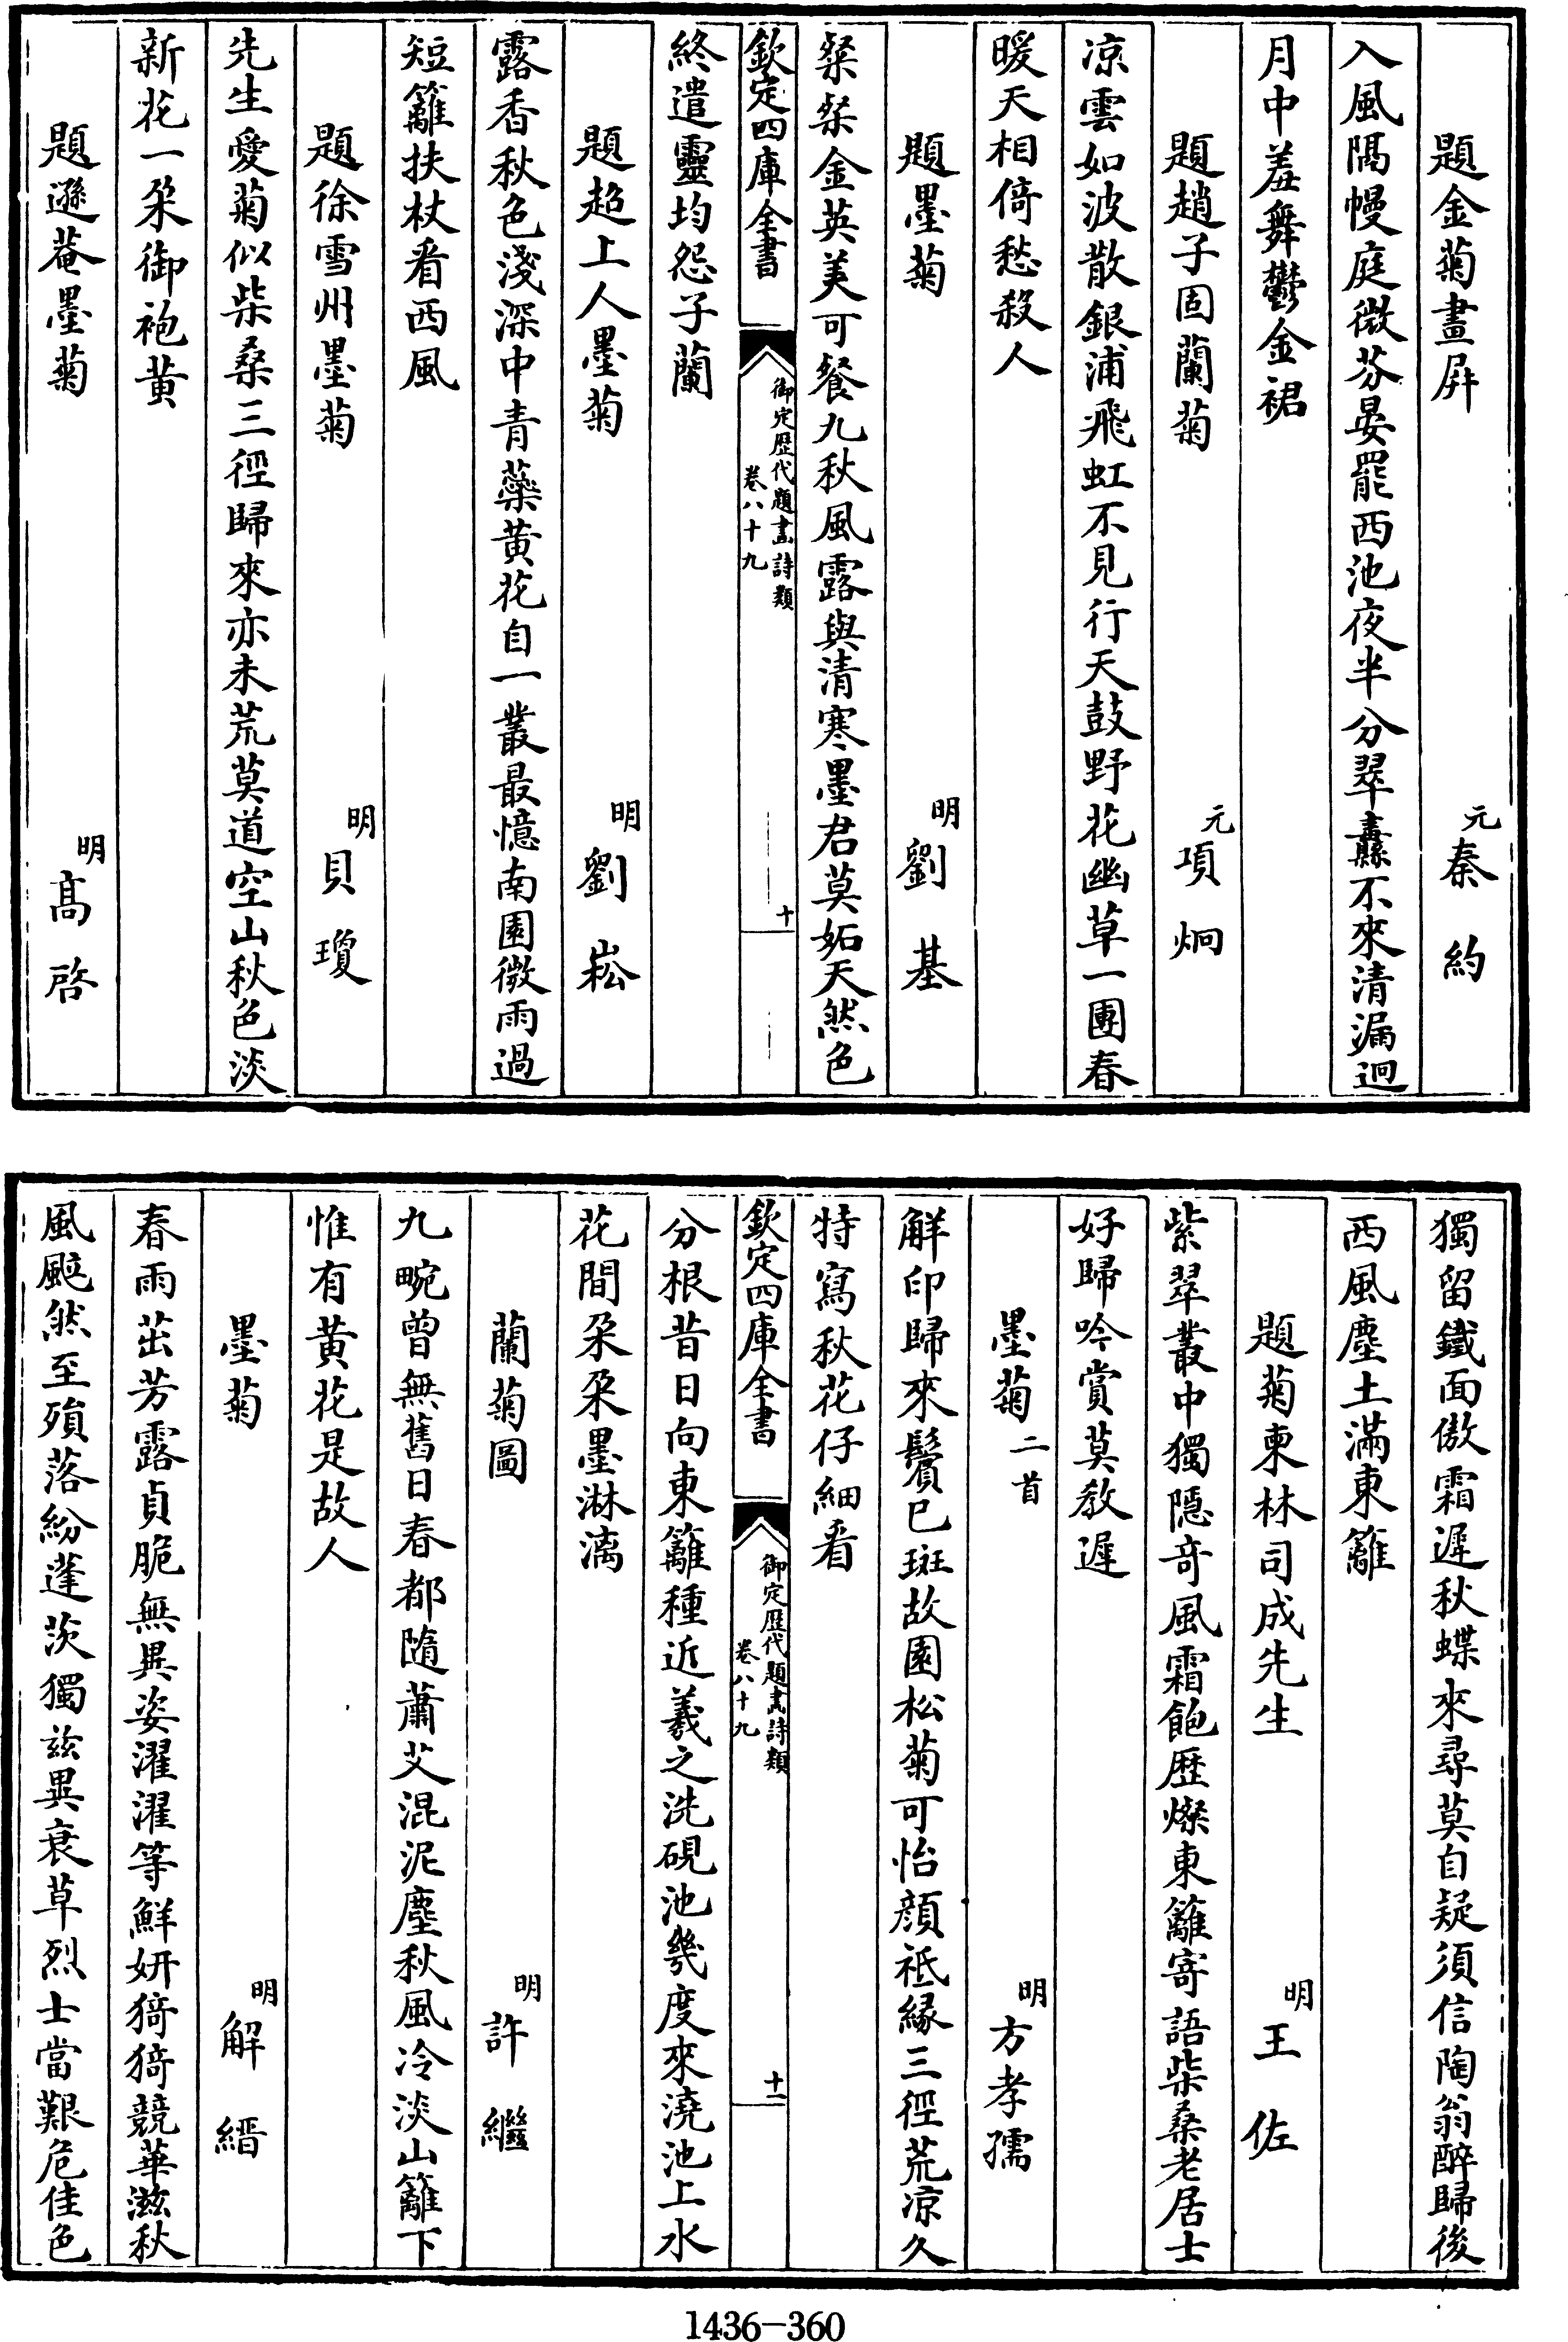 題金菊畫屛　元秦約
入風隅幔庭微芬晏罷西池夜半分翠纛不來清漏迥
月中羞舞鬱金裙
題趙子固蘭菊　元項炯
凉雲如波散銀浦飛虹不見行天鼓野花幽草一團春
暖天相倚愁殺人
題墨菊　明劉基
粲粲金英美可餐九秋風露與清寒墨君莫妬天然色
欽定四庫全書　御定歷代題畫詩類　卷八十九　十
終遣靈均怨子蘭
題超上人墨菊　明劉崧
露香秋色淺深中青蘂黄花自一叢最憶南園微雨過
短籬扶杖看西風
題徐雪州墨菊　明貝瓊
先生愛菊似柴桑三徑歸來亦未荒莫道空山秋色淡
新花一朶御袍黄
題遜菴墨菊　明高啓
獨留鐵面傲霜遲秋蝶來尋莫自疑須信陶翁醉歸後
西風塵土滿東籬
題菊柬林司成先生　明王佐
紫翠叢中獨隱奇風霜飽歷燦東籬寄語柴桑老居士
好歸吟賞莫教遲
墨菊二首　明方孝孺
解印歸來鬢已斑故園松菊可怡顔祗緣三徑荒凉久
特寫秋花仔細看
欽定四庫全書　御定歷代題畫詩類　卷八十九　十一
分根昔日向東籬種近羲之洗硯池幾度來澆池上水
花間朶朶墨淋漓
蘭菊圖　明許繼
九畹曾無舊日春都隨蕭艾混泥塵秋風冷淡山籬下
惟有黄花是故人
墨菊　明解縉
春雨茁芳露貞脆無異姿濯濯等鮮妍猗猗競華滋秋
風颷然至殞落紛蓬茨獨兹異衰草烈士當艱危佳色
1436-360